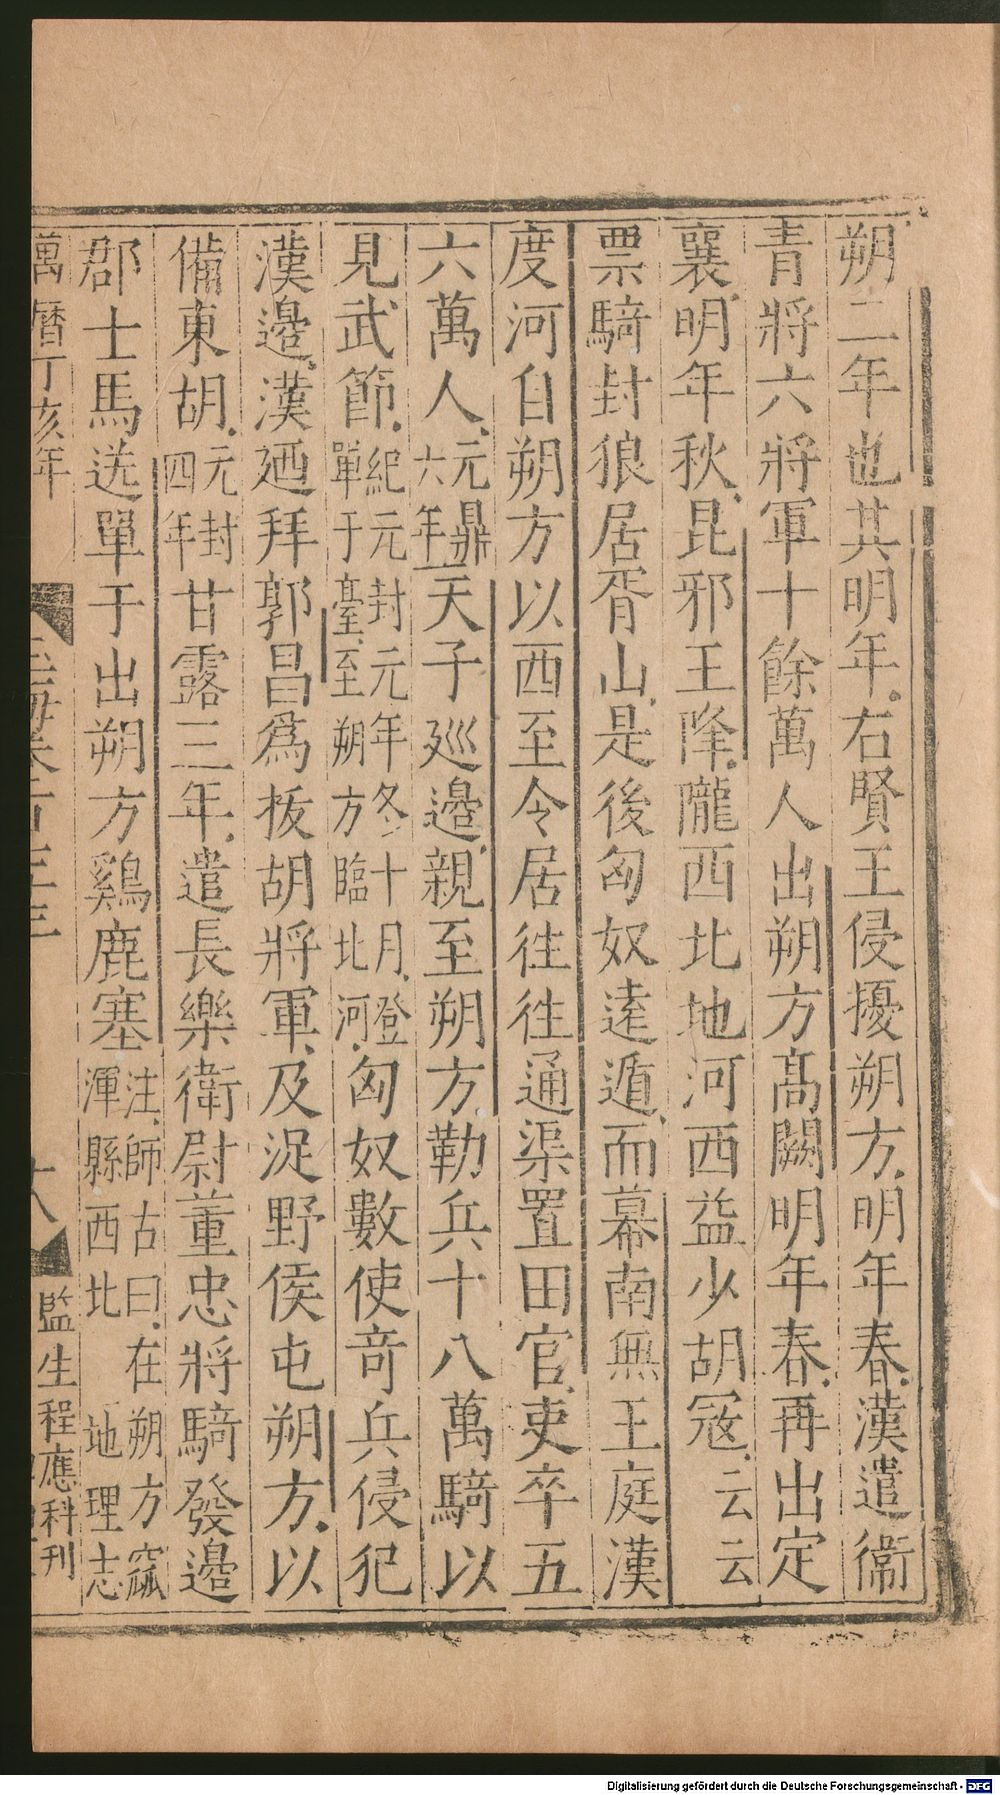 朔二年也其明年右賢王侵擾朔方明年春漢遣衞
青將六將軍十餘萬人出朔方髙闕明年春再出定
襄明年秋昆邪王降隴西北地河西益少胡冦云云
票騎封狼居胥山是後匈奴逺遁而幕南無王庭漢
度河自朔方以西至令居徃徃通渠置田官吏卒五
六萬人元鼎六年天子廵邉親至朔方勒兵十八萬騎以
見武節紀元封元年冬十月登單于臺至朔方臨北河匈奴數使竒兵侵犯
漢邉漢廼拜郭昌爲拔胡將軍及浞野侯屯朔方以
備東胡元封四年甘露三年遣長樂衛尉董忠將騎發邉
郡士馬送單于出朔方鷄鹿塞注師古曰在朔方窳渾縣西北地理志
萬曆丁亥年
玉海卷百三三
十八
監生程應科刊
Digitalisierung gefördert durch die Deutsche Forschungsgemeinschaft - DFG